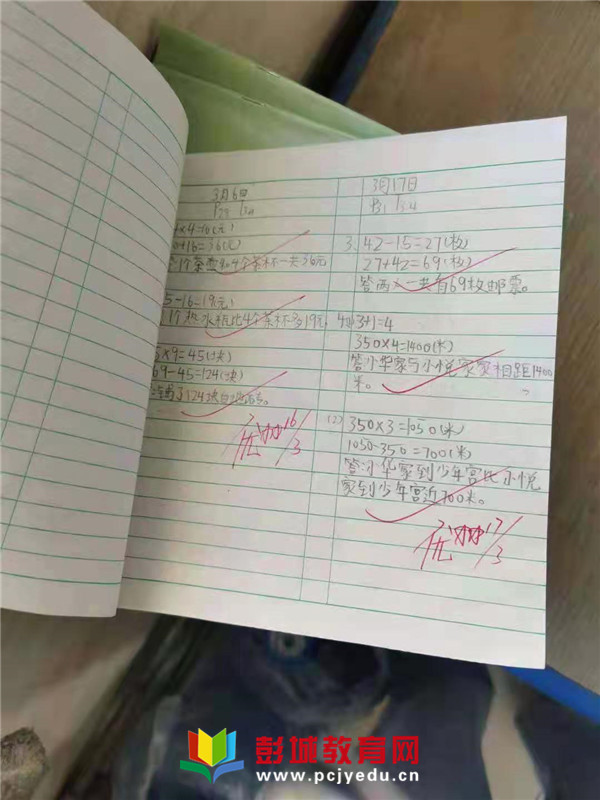 3月6日
P29 T4
×4=16(元)
+16=36(元)
答:1个茶壶和4个茶杯一共36元
5-16=19(元)
1个热水瓶比4个茶杯多19元
×9=45(块)
69-45=124(块)
124块
优 16/3
3月17日
P31 T3.4
3. 42-15=27(枚)
27+42=69(枚)
答:两人一共有69枚邮票。
4. 3+1=4
350×4=1400(米)
答:小华家与小悦家相距1400
米。
(2) 350×3=1050(米)
1050-350=700(米)
答:小华家到少年宫比小悦
家到少年宫近700米。
优 17/3
彭城教育网
www.pcjyedu.cn